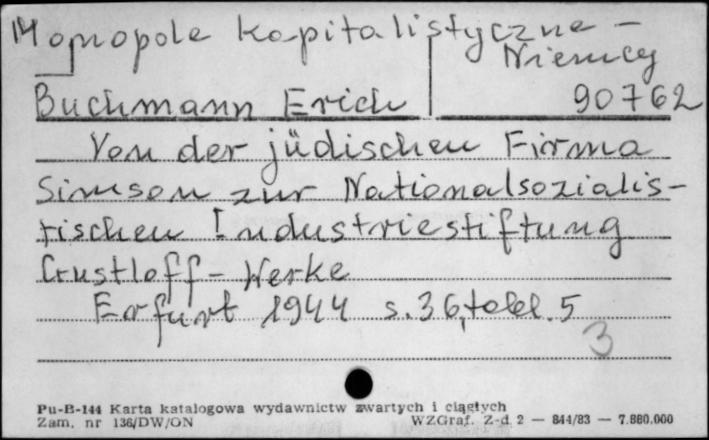 Monopole kapitalistyczne -
Niemcy
Buchmann Erich 90762
Von der jüdischen Firma
Simson zur Nationalsozialis-
tischen Industriestiftung
Gustloff - Werke
Erfurt 1944 s. 36, tabl. 5
3
Pu-B-144 Karta katalogowa wydawnictw zwartych i ciągłych
Zam. nr 136/DW/ON WZGraf. Z-d 2 — 844/83 — 7.880.000